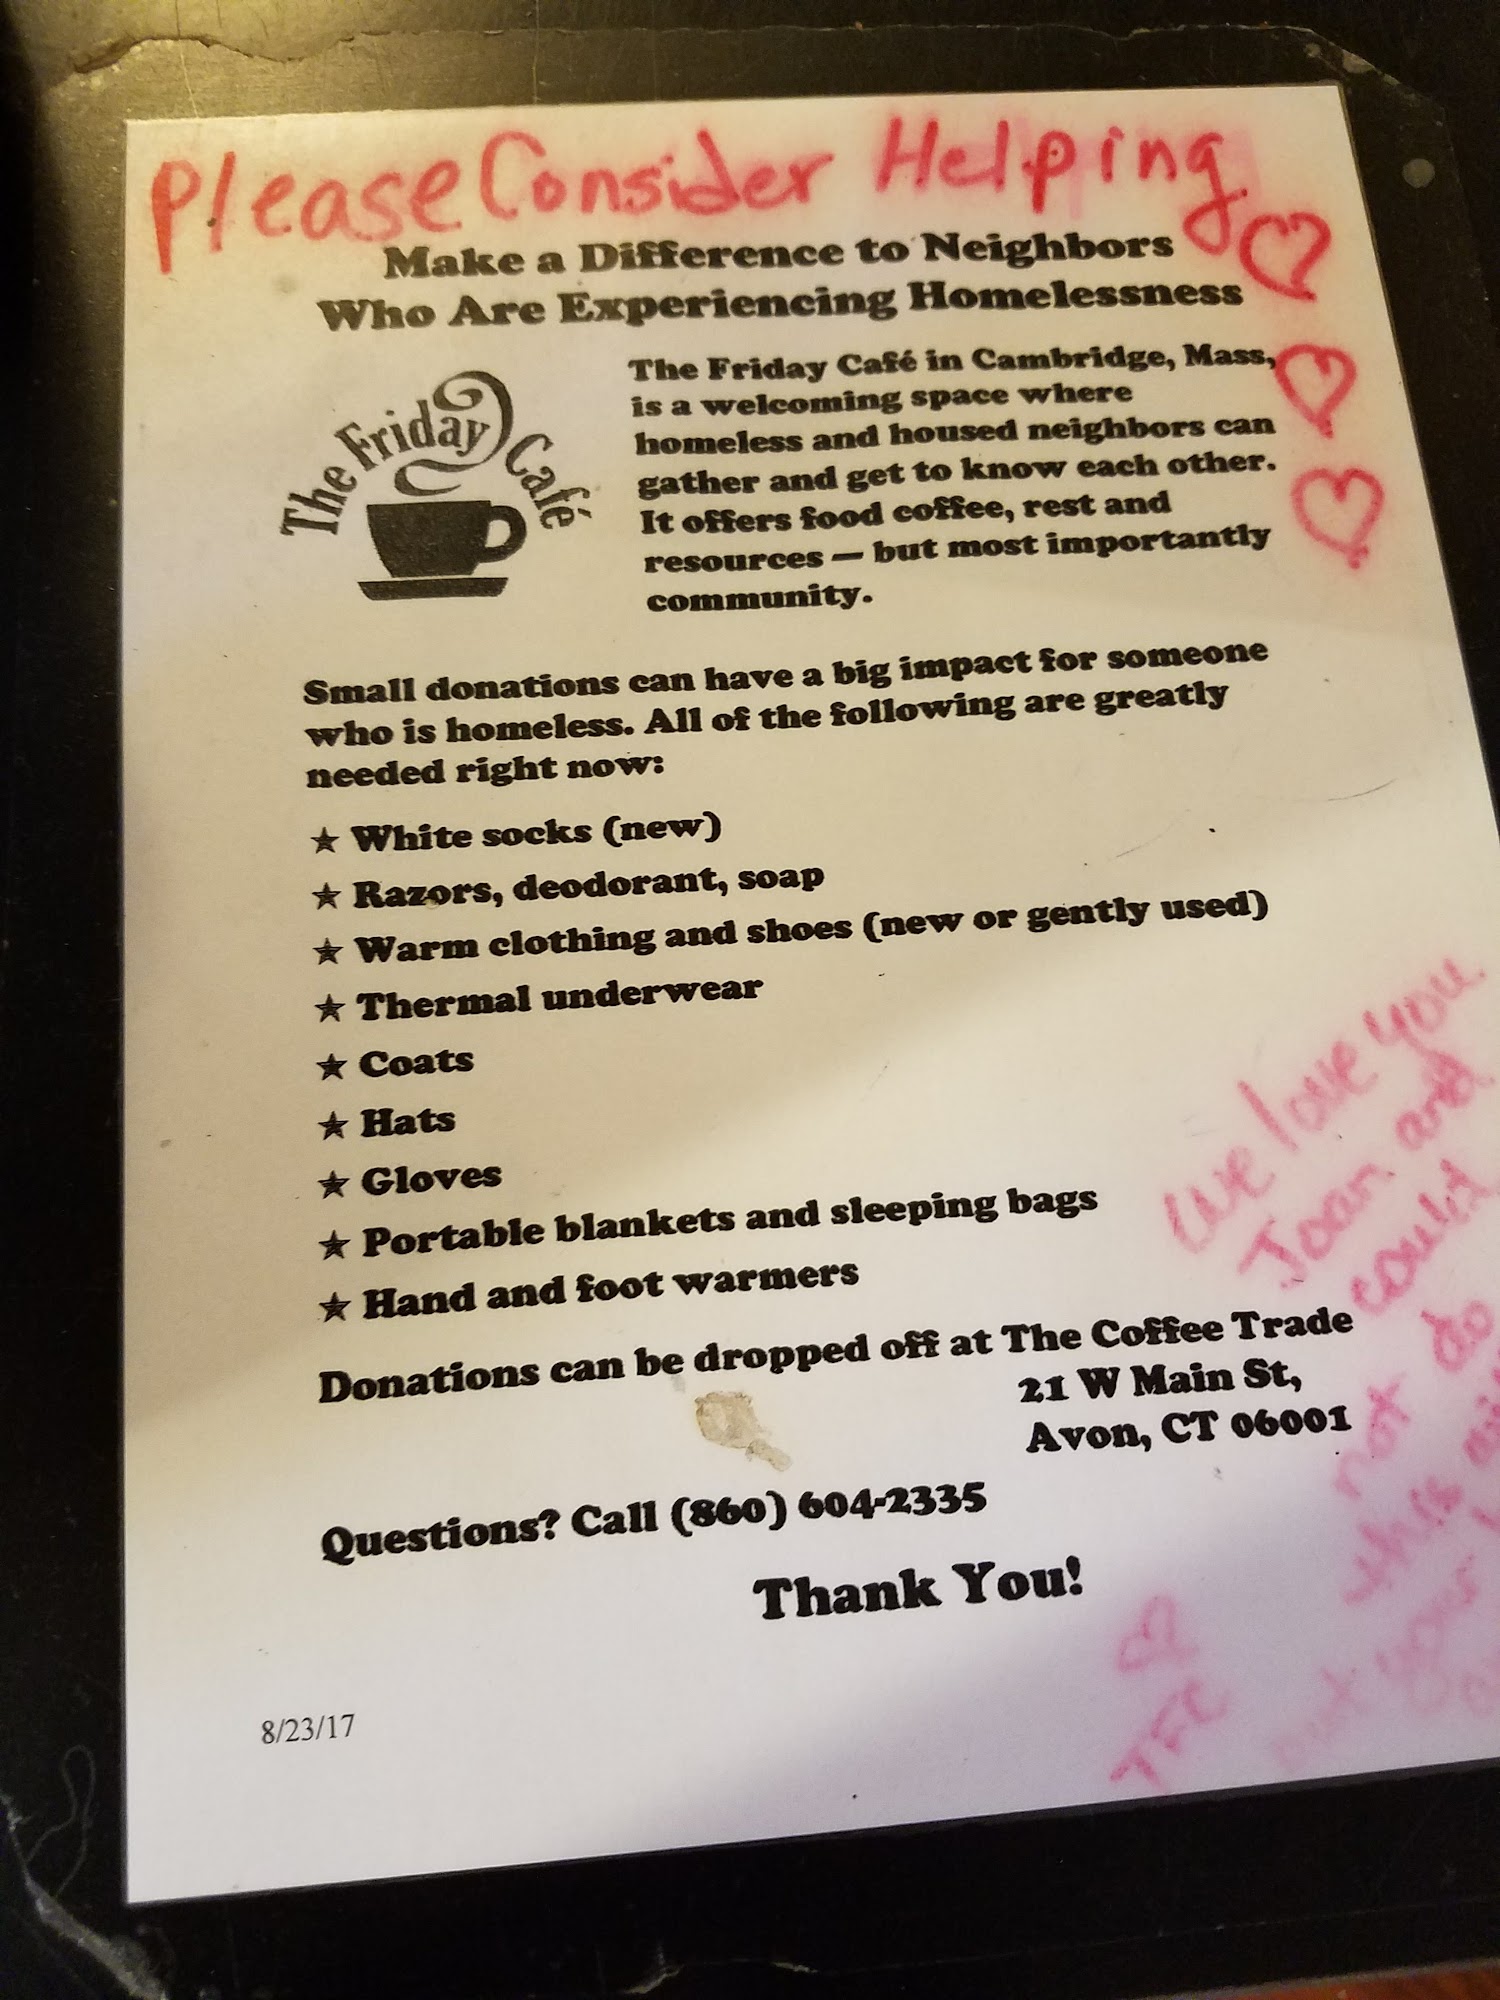 Please Consider Helping
Make a Difference to Neighbors
Who Are Experiencing Homelessness
The Friday Café
The Friday Café in Cambridge, Mass,
is a welcoming space where
homeless and housed neighbors can
gather and get to know each other.
It offers food coffee, rest and
resources — but most importantly
community.
Small donations can have a big impact for someone
who is homeless. All of the following are greatly
needed right now:
★ White socks (new)
★ Razors, deodorant, soap
★ Warm clothing and shoes (new or gently used)
★ Thermal underwear
★ Coats
★ Hats
★ Gloves
★ Portable blankets and sleeping bags
★ Hand and foot warmers
Donations can be dropped off at The Coffee Trade
21 W Main St,
Avon, CT 06001
Questions? Call (860) 604-2335
Thank You!
8/23/17
We love you
Joan and
could
not do
this
your
♡
TFC